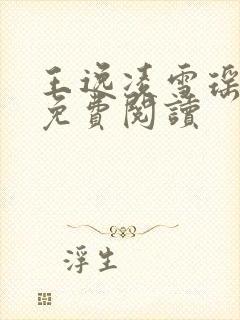 王逸凌雪瑶
免費閱讀
浮生